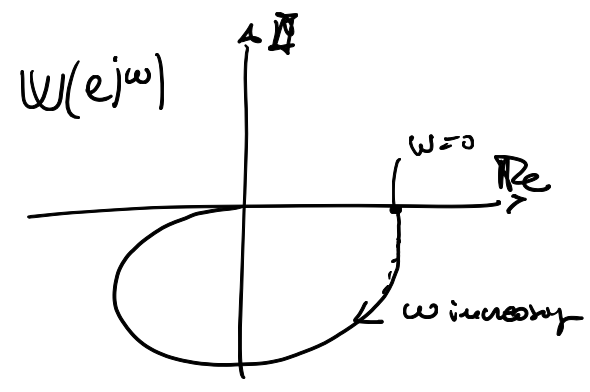 Im
W(e^jω)
ω=0
Re
ω increasing